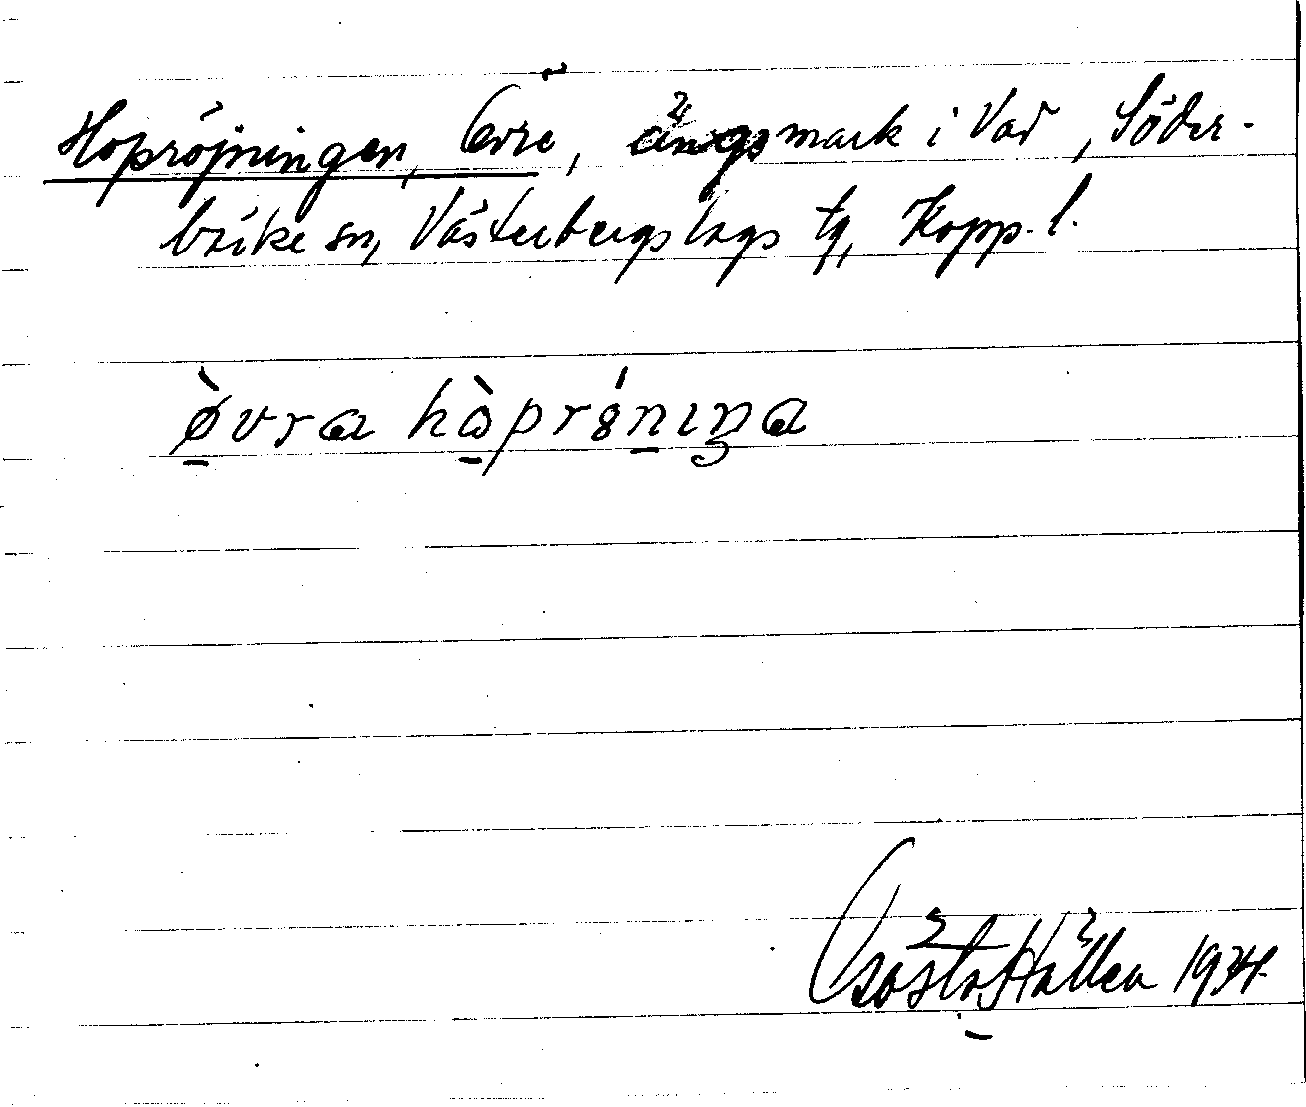 Hopröjningen, Övre, ängsmark i Vad, Söder-
bärke sn, Västerbergslags tg, Kopp. l.
ø̀vra hɷ̀pr8́nıŋa
Gösta Hållen 1934.